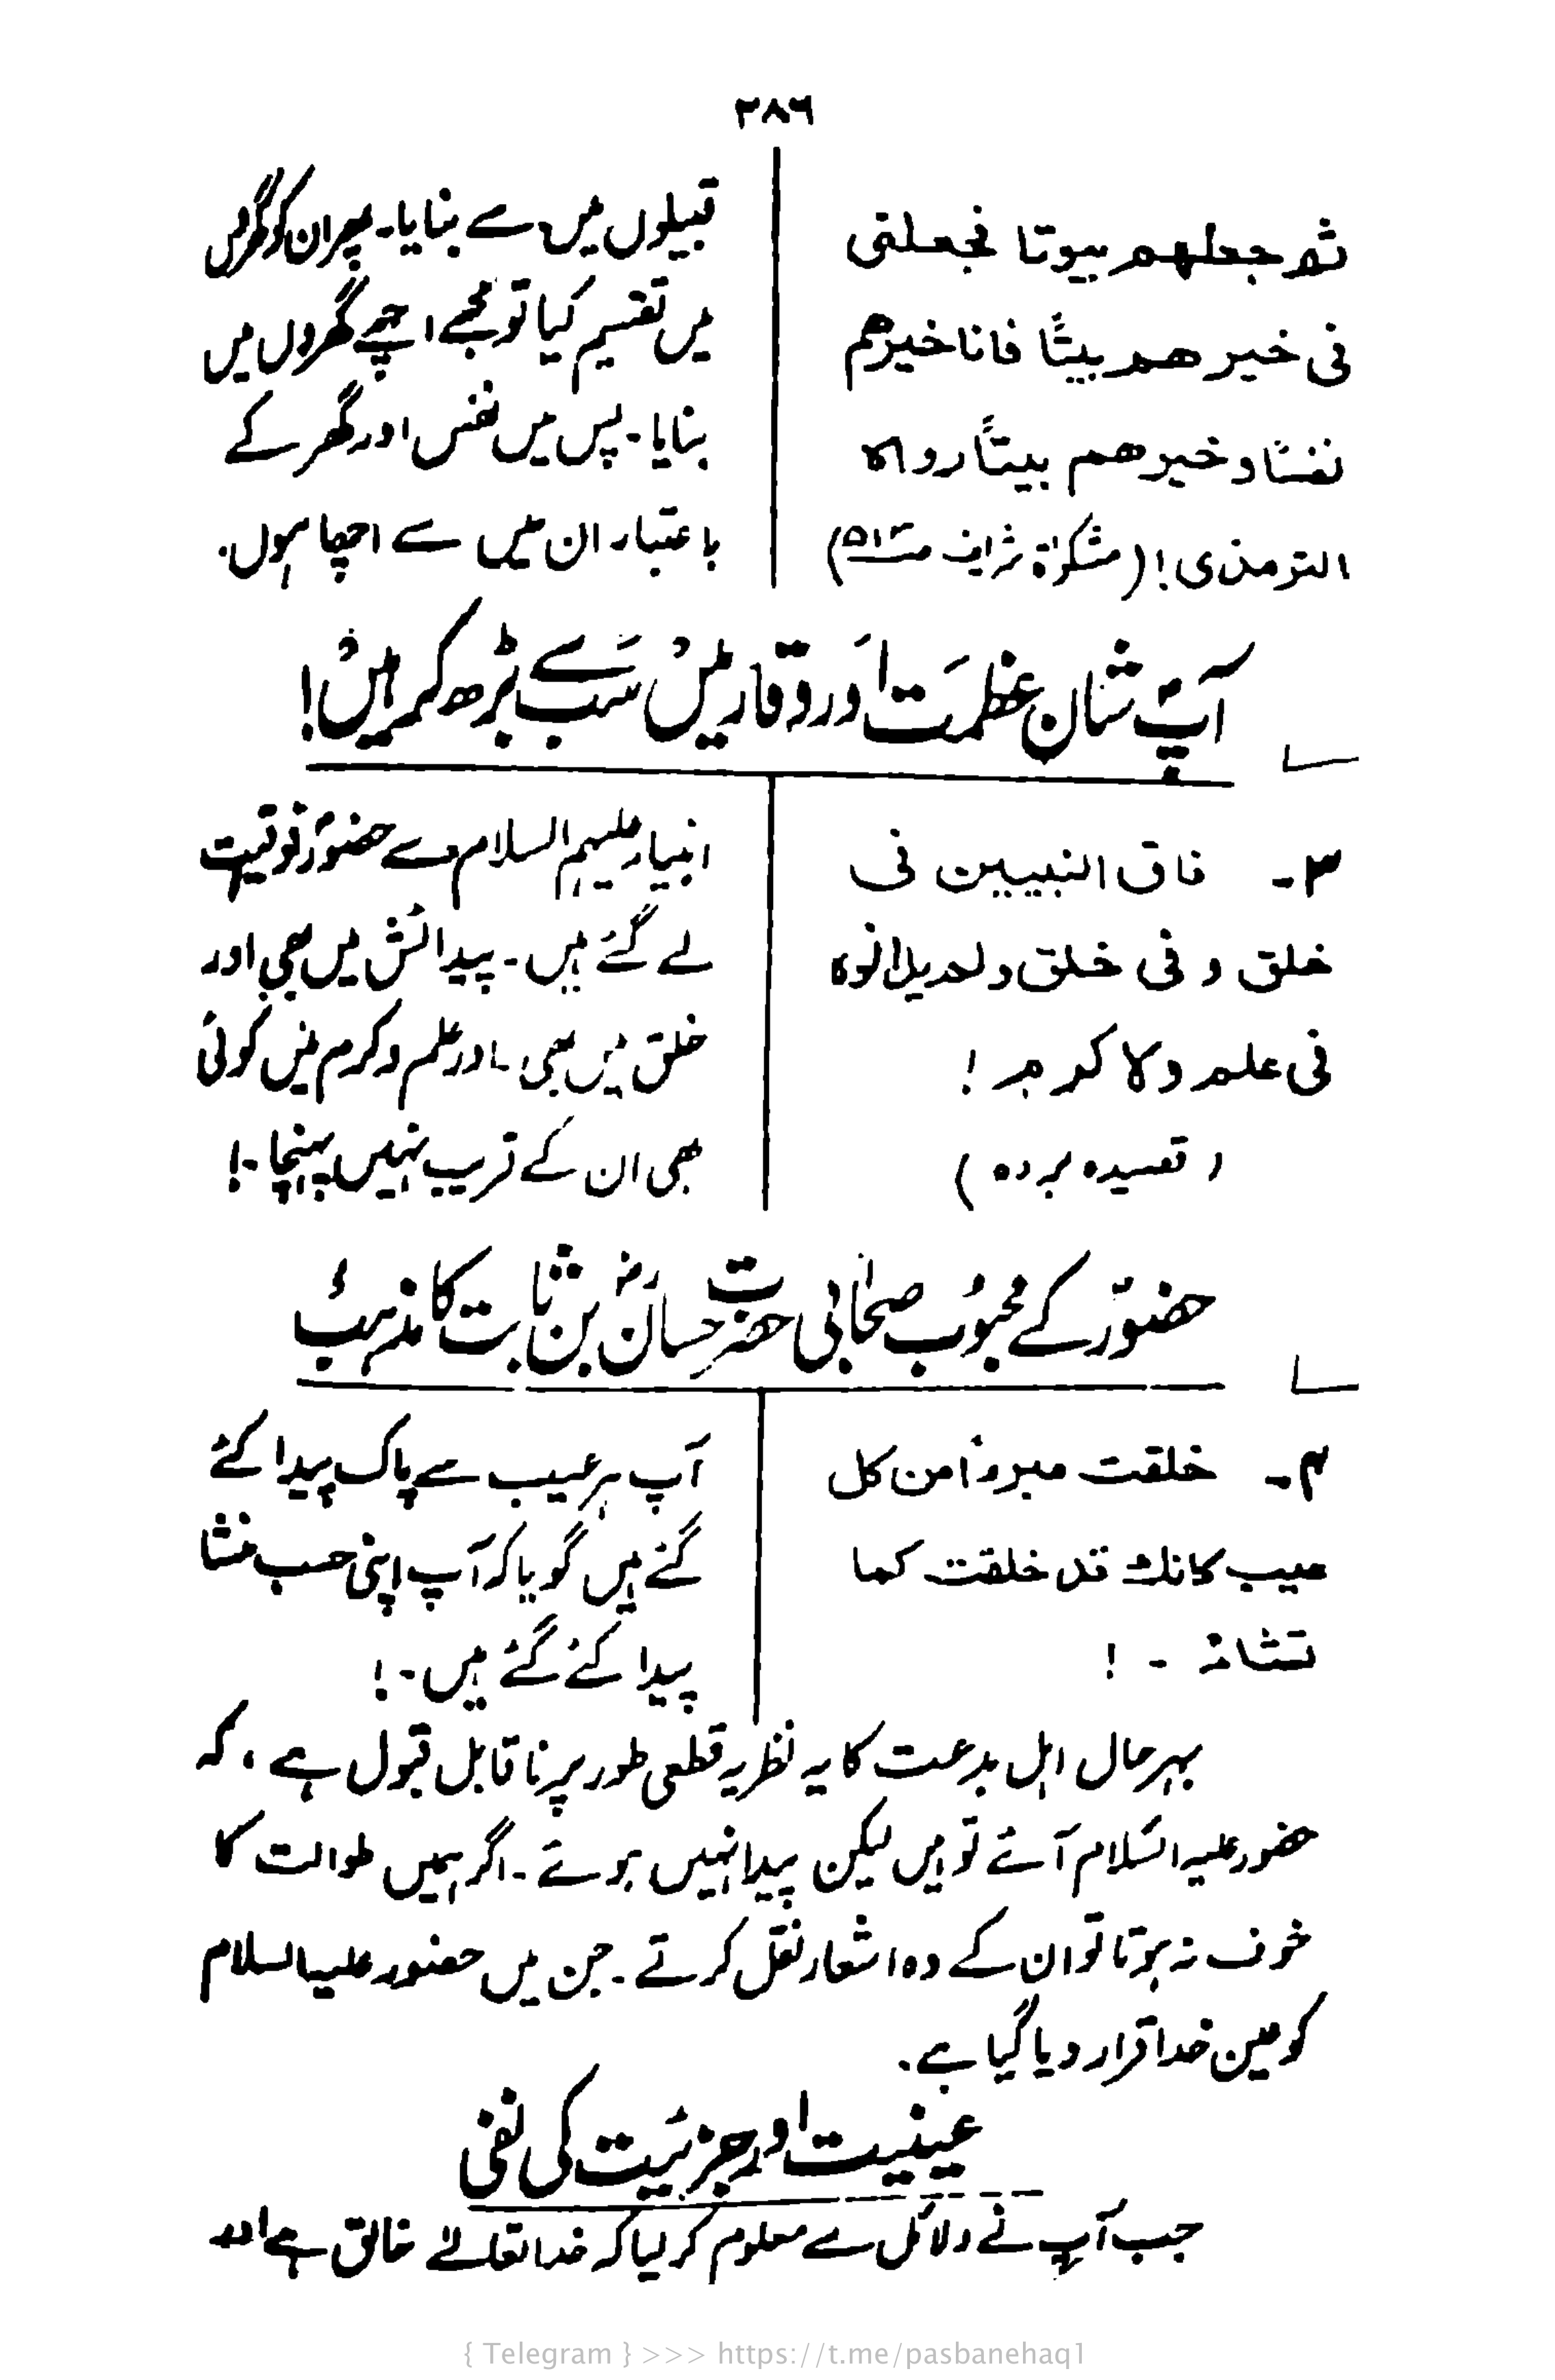 ۳۸۶
ثم جعلهم بيوتا فجعلنی
فی خيرهم بيتًا فانا خيرهم
نفسًا و خيرهم بيتًا رواه
الترمذی! (مشکوٰۃ شریف ص۵۱۳)
قبیلوں میں سے بنایا۔ پھر ان کو گھروں
میں تقسیم کیا تو مجھے اچھے گھروں میں
بنایا۔ پس میں نفس اور گھر کے
باعتبار ان میں سے اچھا ہوں.
آپؐ شان عظمت اور وقار میں سب سے بڑھ کر ہیں!
۳۔ فاق النبیین فی
خلق و فی خلق ولم یدانوہ
فی علم ولا کرم !
(قصیدہ بردہ)
انبیاء علیہم السلام سے حضورؐ فوقیت
لے گئے ہیں۔ پیدائش میں بھی اور
خلق میں بھی۔ اور علم و کرم میں کوئی
بھی ان کے قریب نہیں پہنچا۔!
حضورؐ کے محبوب صحابی حضرت حسانؓ بن ثابت کا مذہب
۴۔ خلقت مبروأ من کل
عیب کانك قد خلقت کما
تشاء ۔ !
آپ ہر عیب سے پاک پیدا کئے
گئے ہیں گویا کہ آپ اپنی حسب منشا
پیدا کئے گئے ہیں۔!
بہر حال اہل بدعت کا یہ نظریہ قطعی طور پر ناقابل قبول ہے، کہ
حضور علیہ السلام آئے تو ہیں لیکن پیدا نہیں ہوئے۔ اگر ہمیں طوالت کا
خوف نہ ہوتا تو ان کے وہ اشعار نقل کرتے۔ جن میں حضور علیہ السلام
کو عین خدا قرار دیا گیا ہے.
عینیت اور جزئیت کی نفی
جب آپ نے دلائل سے معلوم کر لیا کہ خدا تعالےٰ خالق ہے اور
{ Telegram } >>> https://t.me/pasbanehaq1